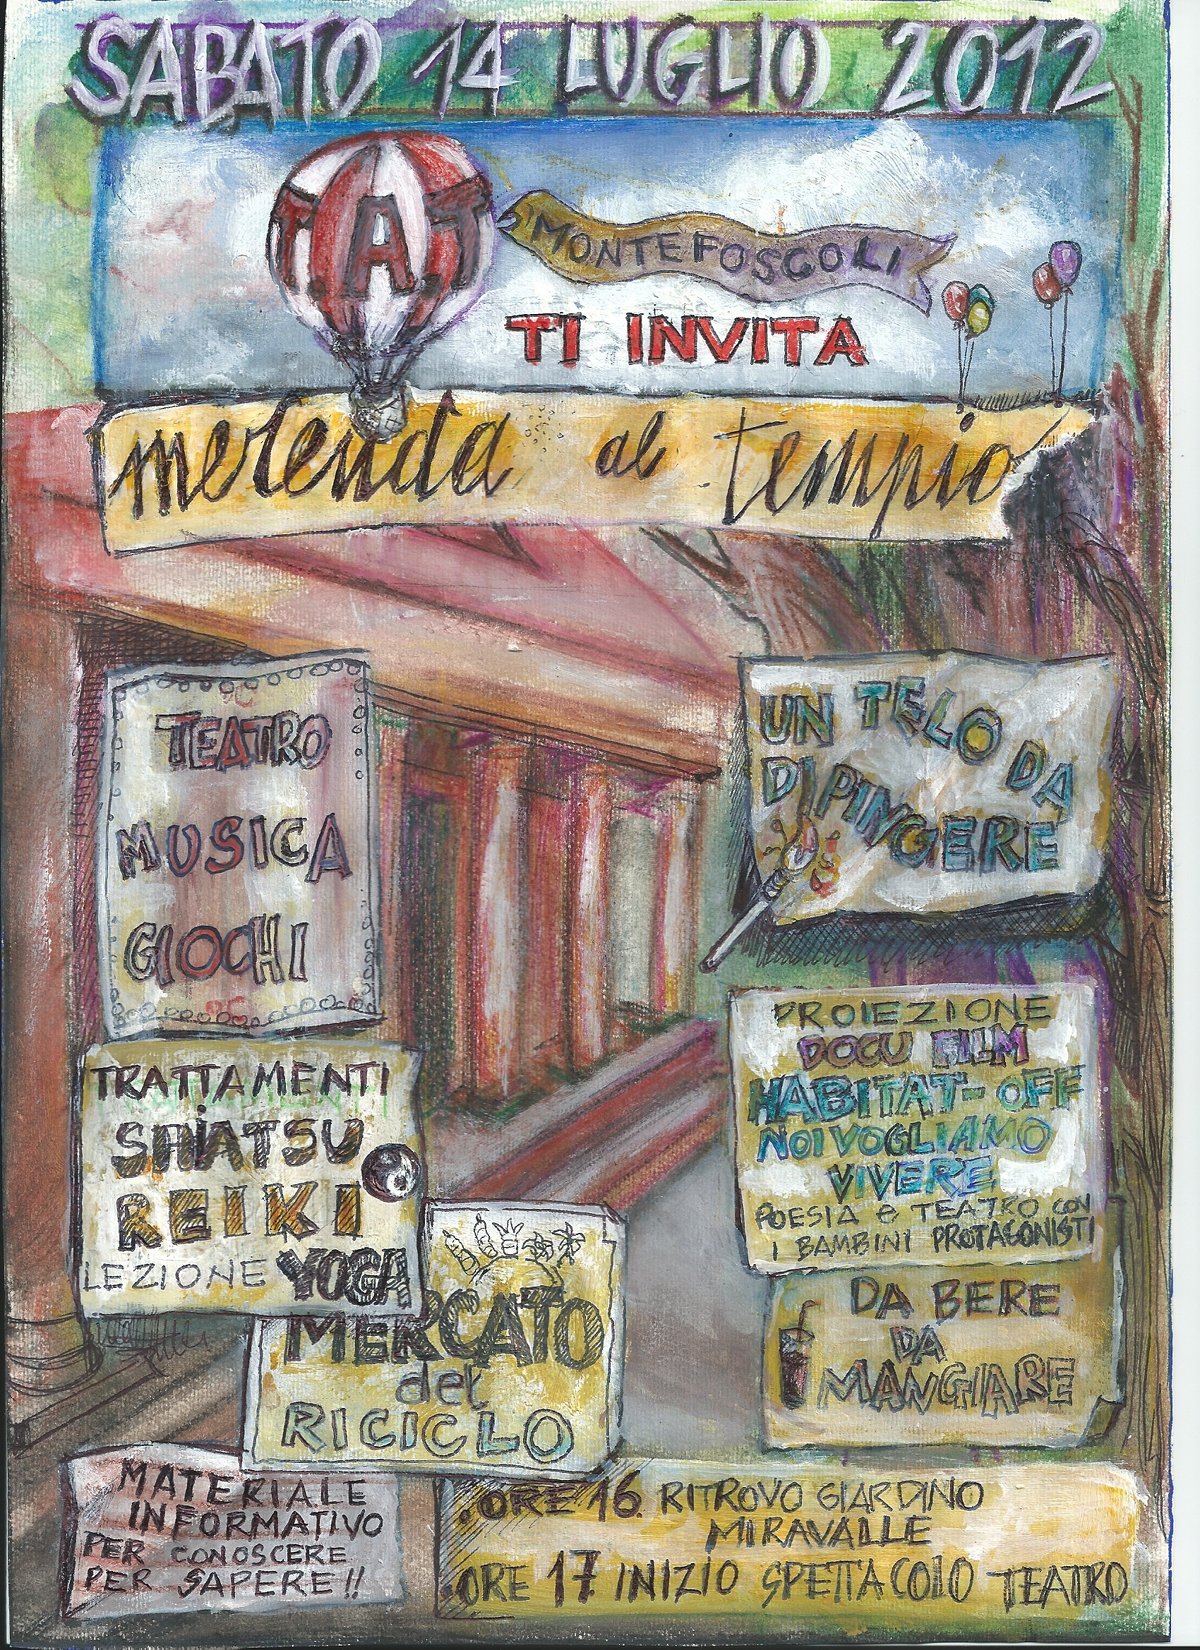 SABATO 14 LUGLIO 2012
T.A.T
MONTEFOSCOLI
TI INVITA
merenda al tempio
TEATRO
MUSICA
GIOCHI
UN TELO DA
DIPINGERE
TRATTAMENTI
SHIATSU
REIKI
LEZIONE YOGA
PROIEZIONE
DOCU FILM
HABITAT-OFF
NOI VOGLIAMO
VIVERE
POESIA e TEATRO CON
I BAMBINI PROTAGONISTI
MERCATO
del
RICICLO
DA BERE
DA
MANGIARE
MATERIALE
INFORMATIVO
PER CONOSCERE
PER SAPERE!!
.ORE 16. RITROVO GIARDINO
MIRAVALLE
.ORE 17 INIZIO SPETTACOLO TEATRO